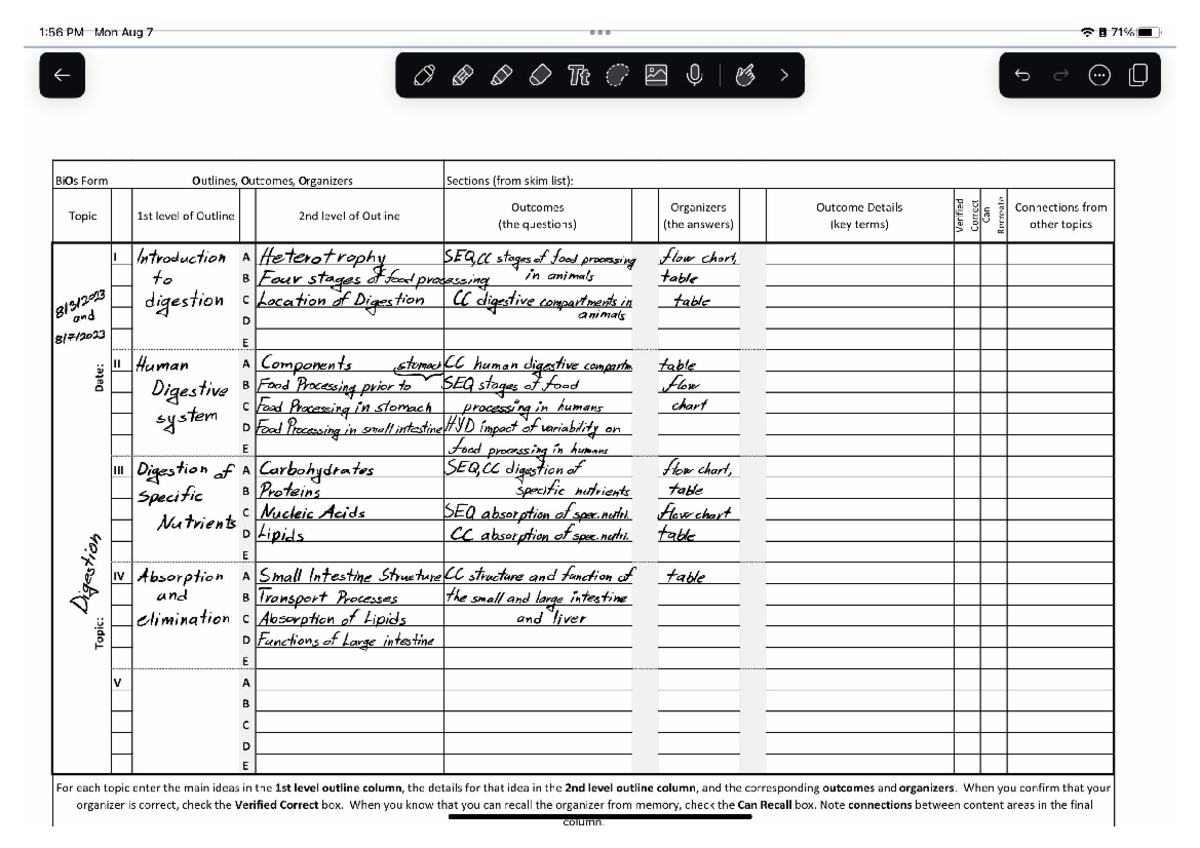 1:56 PM Mon Aug 7
71%
Tt
BiOs Form Outlines, Outcomes, Organizers Sections (from skim list):
Topic 1st level of Outline 2nd level of Outline Outcomes (the questions) Organizers (the answers) Outcome Details (key terms) Verified Correct Can Recreate Connections from other topics
8/3/2023 and 8/7/2023
Date:
Digestion
Topic:
I Introduction A Heterotrophy SEQ,CC stages of food processing flow chart,
to B Four stages of food processing in animals table
digestion C Location of Digestion CC digestive compartments in table
D animals
E
II Human A Components stomach CC human digestive compartm table
Digestive B Food Processing prior to SEQ stages of food flow
system C Food Processing in stomach processing in humans chart
D Food Processing in small intestine HYD impact of variability on
E food processing in humans
III Digestion of A Carbohydrates SEQ,CC digestion of flow chart,
specific B Proteins specific nutrients table
Nutrients C Nucleic Acids SEQ absorption of spec. nutri. flow chart
D Lipids CC absorption of spec. nutri. table
E
IV Absorption A Small Intestine Structure CC structure and function of table
and B Transport Processes the small and large intestine
elimination C Absorption of Lipids and liver
D Functions of Large intestine
E
V A
B
C
D
E
For each topic enter the main ideas in the 1st level outline column, the details for that idea in the 2nd level outline column, and the corresponding outcomes and organizers. When you confirm that your
organizer is correct, check the Verified Correct box. When you know that you can recall the organizer from memory, check the Can Recall box. Note connections between content areas in the final
column.